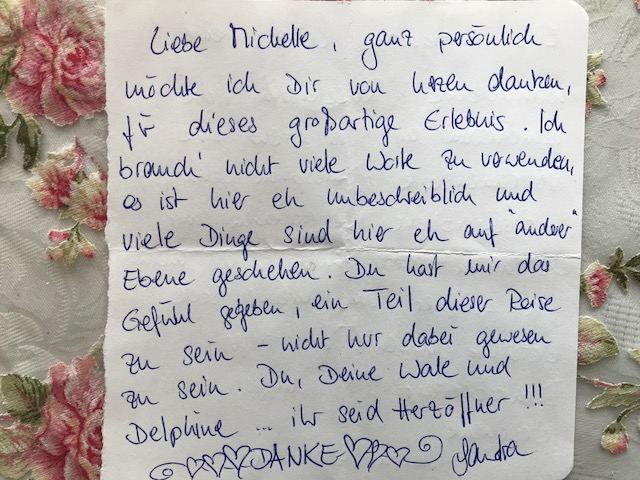 Liebe Michelle, ganz persönlich
möchte ich Dir von Herzen danken,
für dieses großartige Erlebnis. Ich
brauch' nicht viele Worte zu verwenden,
es ist hier eh unbeschreiblich und
viele Dinge sind hier eh auf "anderer"
Ebene geschehen. Du hast mir das
Gefühl gegeben, ein Teil dieser Reise
zu sein - nicht nur dabei gewesen
zu sein. Du, Deine Wale und
Delphine ... ihr seid Herzöffner !!!
DANKE Sandra